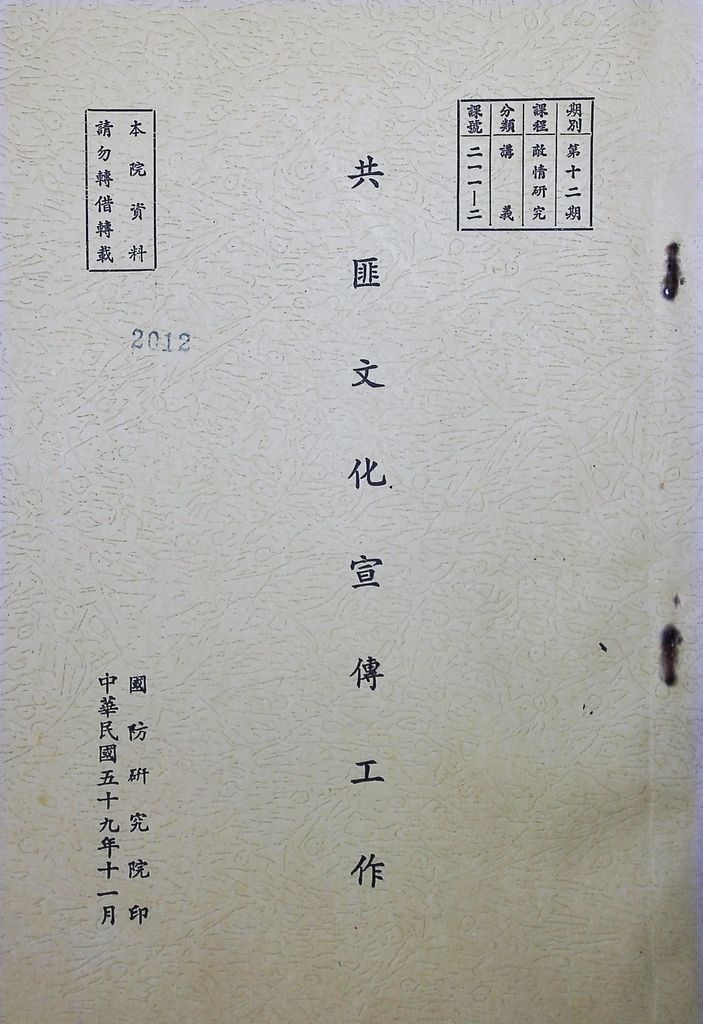 期別 第十二期
課程 敵情研究
分類 講義
課號 二一一—二
共匪文化宣傳工作
本院資料
請勿轉借轉載
2012
國防研究院印
中華民國五十九年十一月